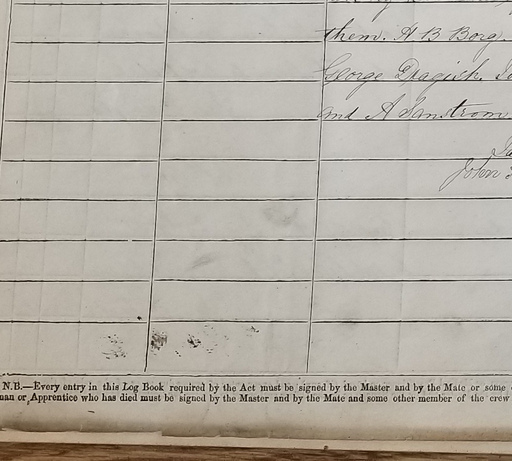 them. A B Borg.
George Dragich.
and A Sanstrom
John
N.B.—Every entry in this Log Book required by the Act must be signed by the Master and by the Mate or some
man or Apprentice who has died must be signed by the Master and by the Mate and some other member of the crew